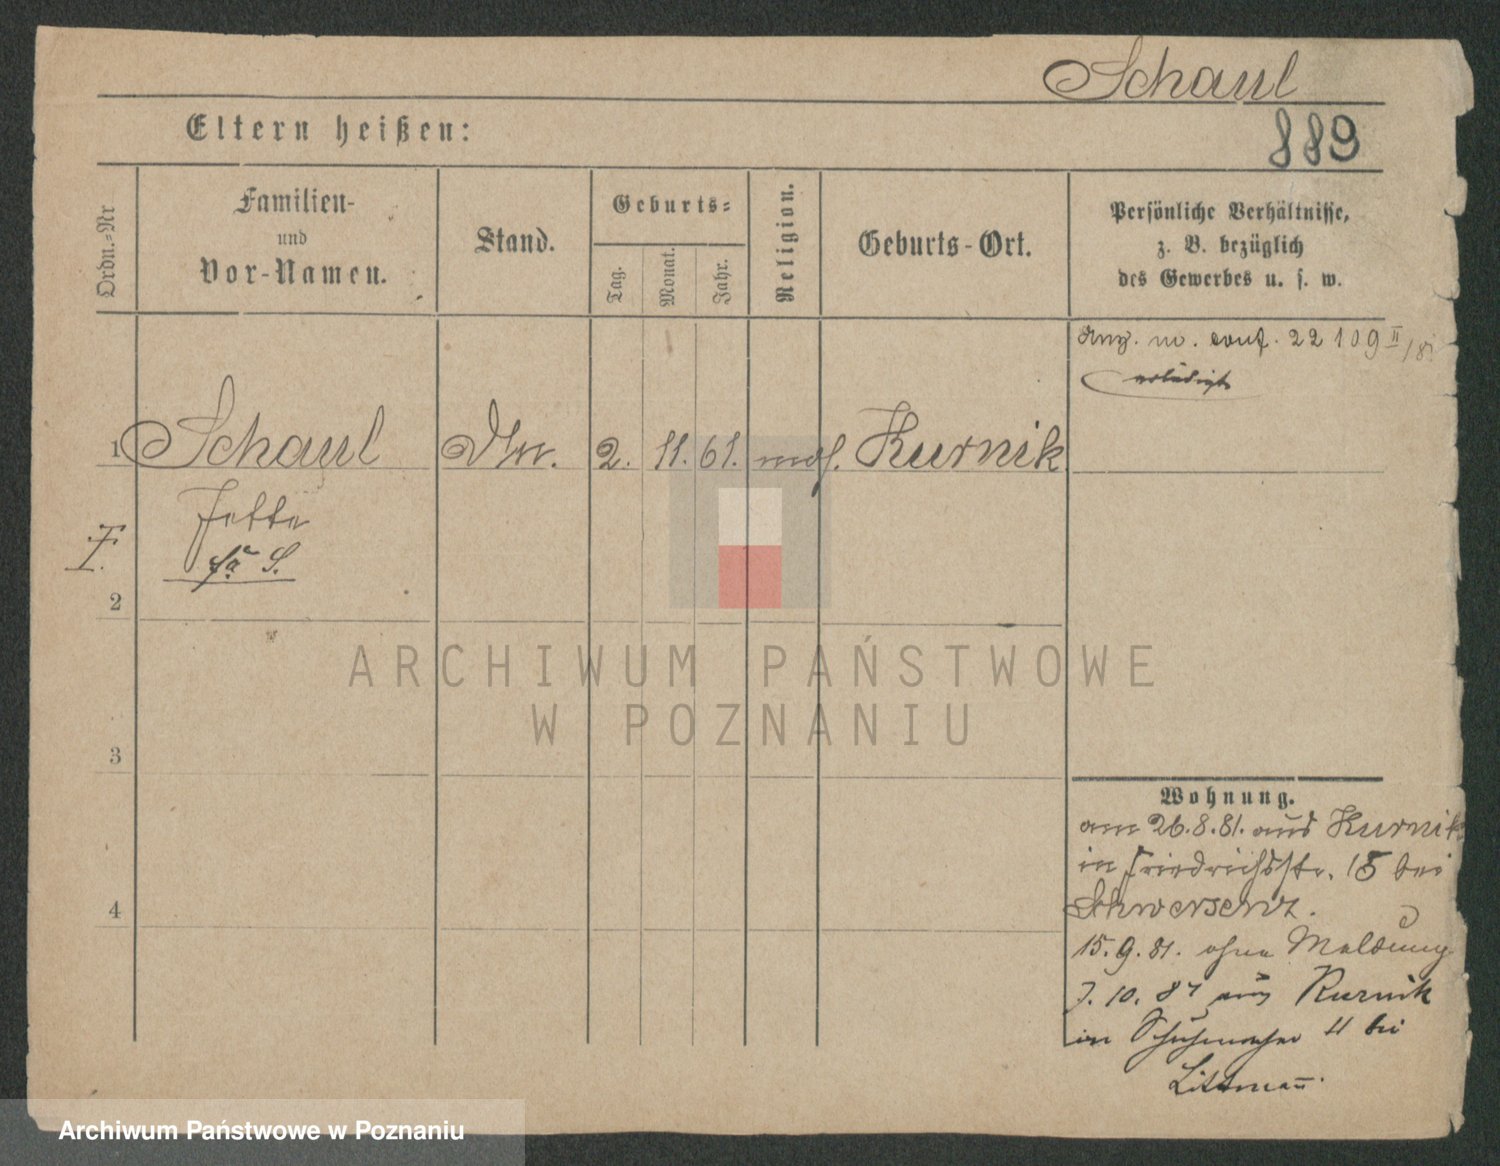 Schaul
889
Eltern heißen:
Ordn.-Nr
Familien-
und
Vor-Namen.
Stand.
Geburts-
Tag.
Monat.
Jahr.
Religion.
Geburts-Ort.
Persönliche Verhältnisse,
z. B. bezüglich
des Gewerbes u. s. w.
22109 II
erledigt
1 Schaul 2. 11. 61. mos. Kurnik
Jette
F.
2
3
4
ARCHIWUM PAŃSTWOWE
W POZNANIU
Wohnung.
am 26.8.81. aus Kurnik
in Friedrichsstr. 15 bei
Schwersenz.
15.9.81. ohne Meldung
7.10.87 aus Kurnik
in Schuhmacher 11 bei
Littmann.
Archiwum Państwowe w Poznaniu